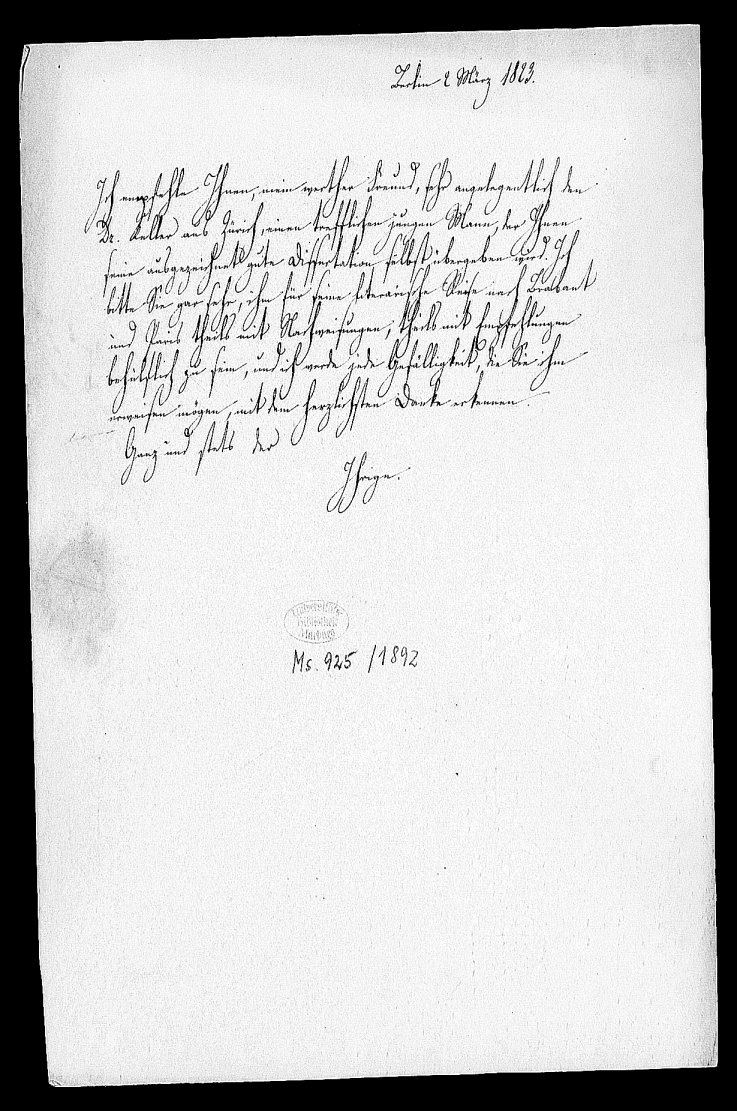 Berlin 2 März 1823.
Ich empfehle Ihnen, mein werther Freund, sehr angelegentlich den
Dr. Keller aus Zürich, einen trefflichen jungen Mann, der Ihnen
seine ausgezeichnet gute Dissertation selbst übergeben wird. Ich
bitte Sie gar sehr, ihm für seine literarische Reise nach Brabant
und Paris theils mit Nachweisungen, theils mit Empfehlungen
behülflich zu sein, und ich werde jede Gefälligkeit, die Sie ihm
erweisen mögen, mit dem herzlichsten Danke erkennen.
Ganz und stets der
Ihrige.
Universitäts
Bibliothek
Marburg
Ms. 925 /1892